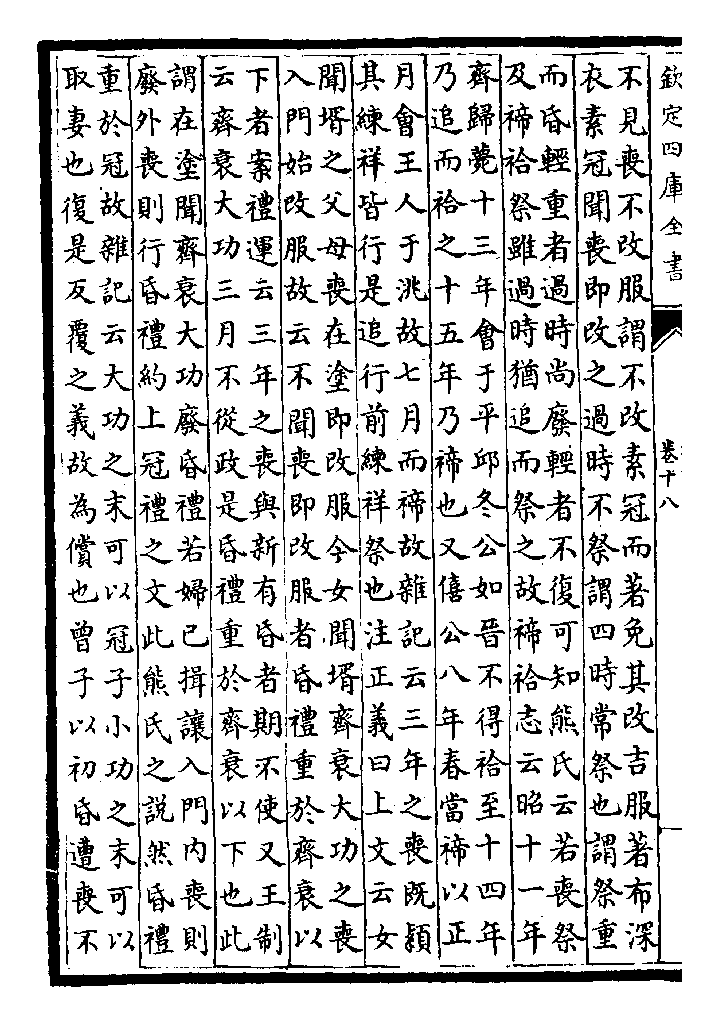 欽定四庫全書
卷十八
不見喪不改服謂不改素冠而著免其改吉服著布深
衣素冠聞喪即改之過時不祭謂四時常祭也謂祭重
而昏輕重者過時尚廢輕者不復可知熊氏云若喪祭
及禘祫祭雖過時猶追而祭之故禘祫志云昭十一年
齊歸薨十三年會于平邱冬公如晉不得祫至十四年
乃追而祫之十五年乃禘也又僖公八年春當禘以正
月會王人于洮故七月而禘故雜記云三年之喪既顈
其練祥皆行是追行前練祥祭也注正義曰上文云女
聞壻之父母喪在塗即改服今女聞壻齊衰大功之喪
入門始改服故云不聞喪即改服者昏禮重於齊衰以
下者案禮運云三年之喪與新有昏者期不使又王制
云齊衰大功三月不從政是昏禮重於齊衰以下也此
謂在塗聞齊衰大功廢昏禮若婦已揖讓入門內喪則
廢外喪則行昏禮約上冠禮之文此熊氏之說然昏禮
重於冠故雜記云大功之末可以冠子小功之末可以
取妻也復是反覆之義故為償也曾子以初昏遭喪不